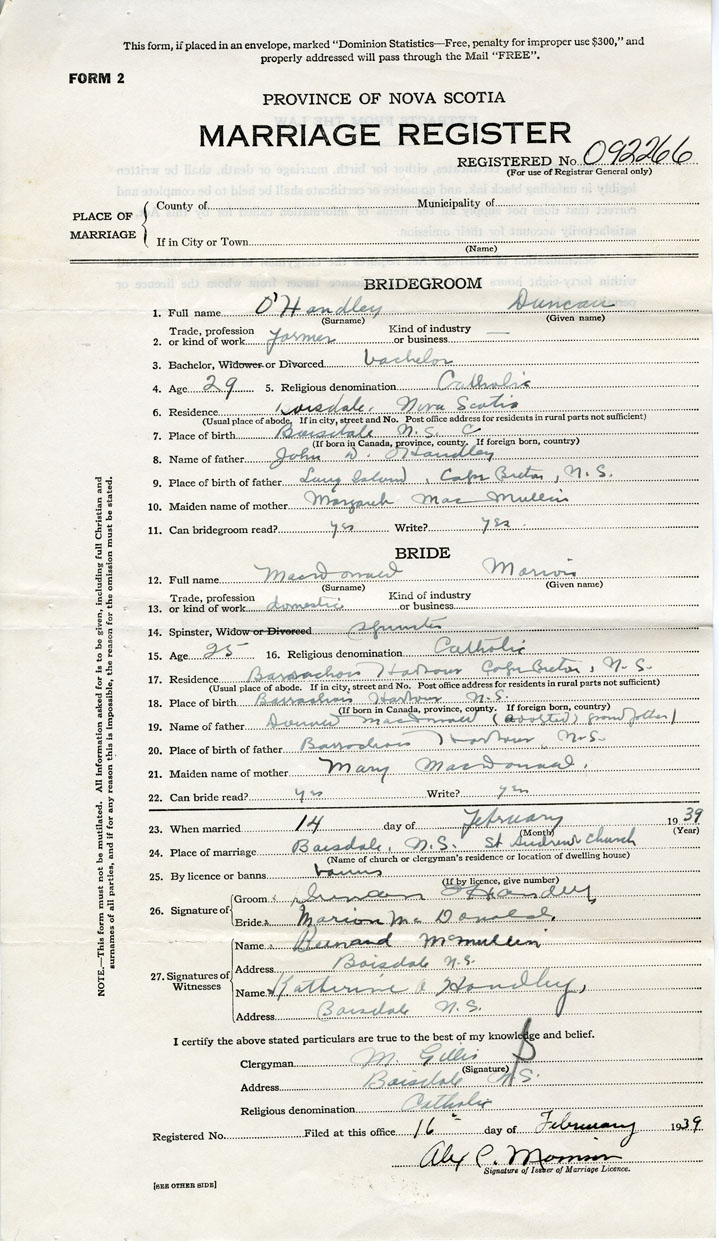 This form, if placed in an envelope, marked "Dominion Statistics—Free, penalty for improper use $300," and
properly addressed will pass through the Mail "FREE".
FORM 2
PROVINCE OF NOVA SCOTIA
MARRIAGE REGISTER
REGISTERED No. 092266
(For use of Registrar General only)
PLACE OF MARRIAGE
County of Municipality of
If in City or Town
(Name)
BRIDEGROOM
1. Full name O'Handley Duncan
(Surname) (Given name)
2. Trade, profession or kind of work farmer Kind of industry or business —
3. Bachelor, Widower or Divorced bachelor
4. Age 29 5. Religious denomination Catholic
6. Residence Boisdale, Nova Scotia
(Usual place of abode. If in city, street and No. Post office address for residents in rural parts not sufficient)
7. Place of birth Boisdale N.S.
(If born in Canada, province, county. If foreign born, country)
8. Name of father John D. O'Handley
9. Place of birth of father Long Island, Cape Breton, N.S.
10. Maiden name of mother Margaret MacMullin
11. Can bridegroom read? yes Write? yes
BRIDE
12. Full name MacDonald Marion
(Surname) (Given name)
13. Trade, profession or kind of work domestic Kind of industry or business
14. Spinster, Widow or Divorced spinster
15. Age 25 16. Religious denomination Catholic
17. Residence Barrachois Harbour Cape Breton, N.S.
(Usual place of abode. If in city, street and No. Post office address for residents in rural parts not sufficient)
18. Place of birth Barrachois Harbour N.S.
(If born in Canada, province, county. If foreign born, country)
19. Name of father MacDonald (adopted) grandfather)
20. Place of birth of father Barrachois Harbour, N.S.
21. Maiden name of mother Mary MacDonald.
22. Can bride read? yes Write? yes
23. When married 14 day of February 1939
(Month) (Year)
24. Place of marriage Boisdale, N.S. St Andrew's Church
(Name of church or clergyman's residence or location of dwelling house)
25. By licence or banns banns
(If by licence, give number)
26. Signature of
Groom Duncan O'Handley
Bride Marion McDonald.
27. Signatures of Witnesses
Name Bernard McMullin
Address Boisdale N.S.
Name Katherine O'Handley,
Address Boisdale N.S.
I certify the above stated particulars are true to the best of my knowledge and belief.
Clergyman M. Gillis
(Signature)
Address Boisdale N.S.
Religious denomination Catholic
Registered No. Filed at this office 16 day of February 1939
Alex C. Morrison
Signature of Issuer of Marriage Licence.
[SEE OTHER SIDE]
NOTE.—This form must not be mutilated. All Information asked for is to be given, including full Christian and
surnames of all parties, and if for any reason this is impossible, the reason for the omission must be stated.